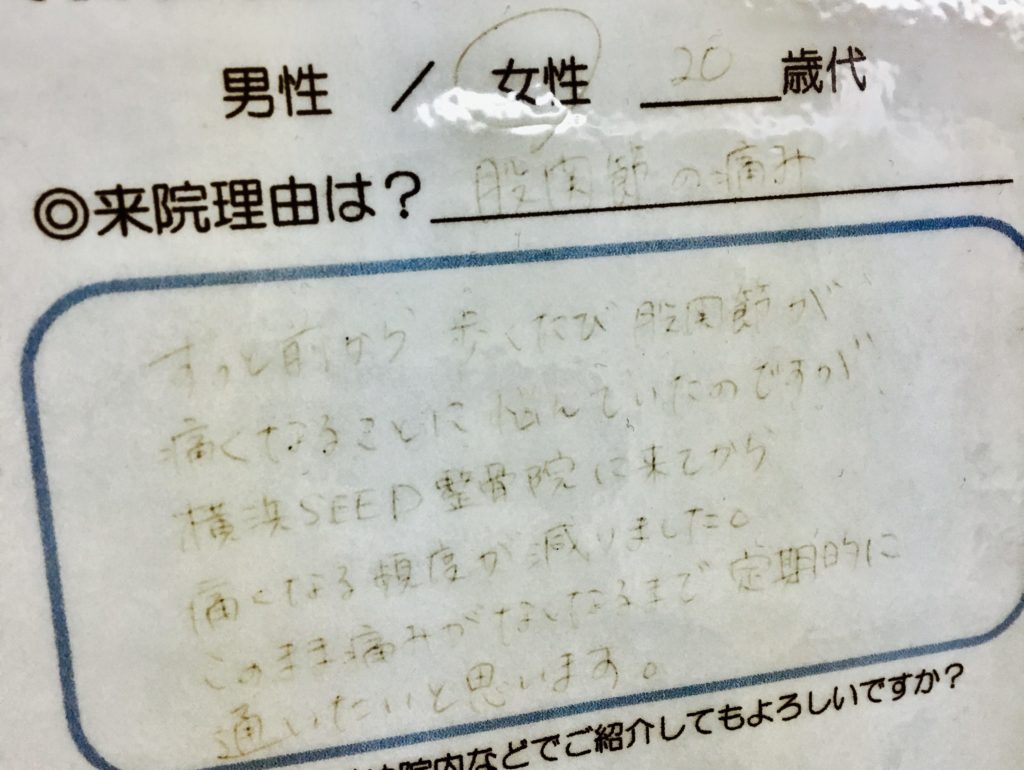 男性 / 女性 20歳代
◎来院理由は?股関節の痛み
ずっと前から 歩くたび 股関節が
痛くなることに 悩んでいたのですが
横浜SEED整骨院に来てから
痛くなる頻度が減りました。
このまま痛みがなくなるまで定期的に
通いたいと思います。
院内などでご紹介してもよろしいですか?